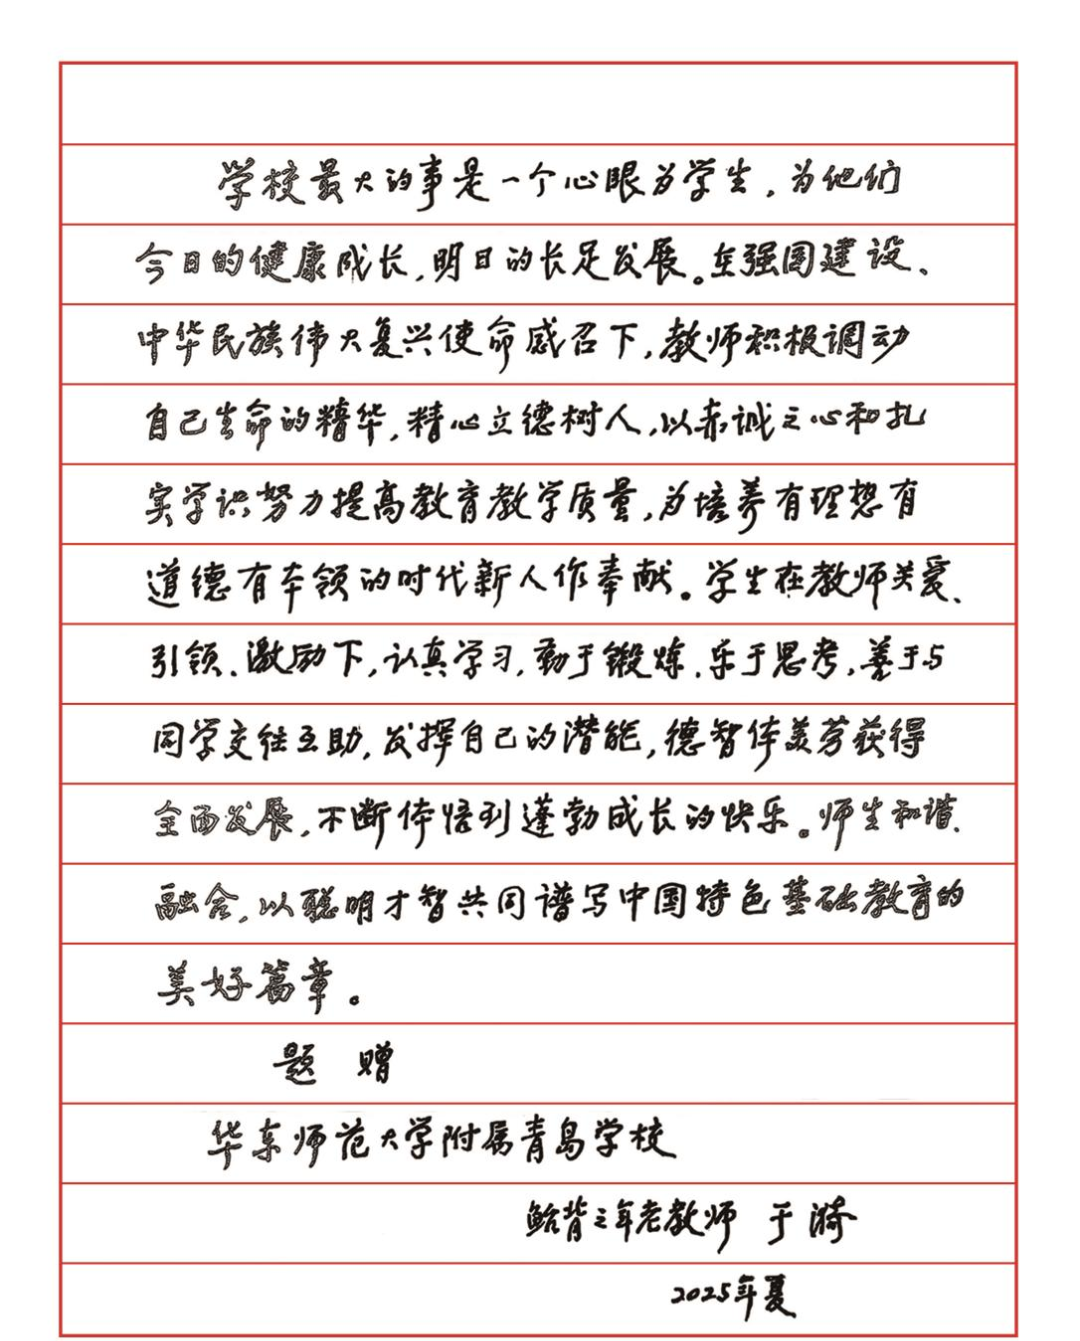 学校最大的事是一个心眼为学生，为他们
今日的健康成长，明日的长足发展。在强国建设、
中华民族伟大复兴使命感召下，教师积极调动
自己生命的精华，精心立德树人，以赤诚之心和扎
实学识努力提高教育教学质量，为培养有理想有
道德有本领的时代新人作奉献。学生在教师关爱、
引领、激励下，认真学习，勤于锻炼、乐于思考，善于与
同学交往互助，发挥自己的潜能，德智体美劳获得
全面发展，不断体悟到蓬勃成长的快乐。师生和谐、
融合，以聪明才智共同谱写中国特色基础教育的
美好篇章。
题 赠
华东师范大学附属青岛学校
鲐背之年老教师 于漪
2025年夏